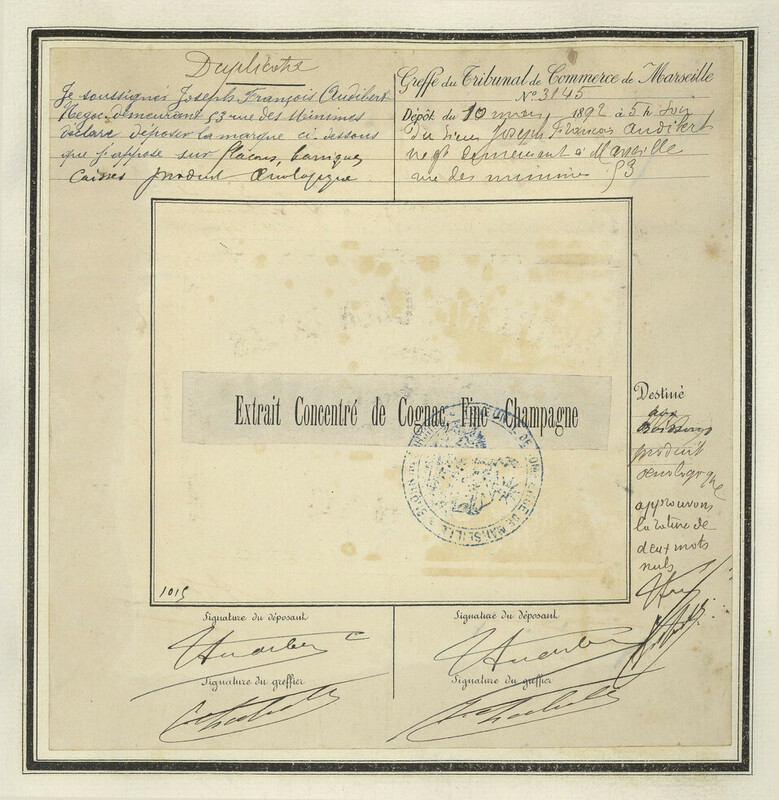 Duplicata
Je soussigné Joseph François Audibert
Negoc. demeurant 53 rue des Minimes
déclare déposer la marque ci-dessous
que j'appose sur flacons, barriques
Caisses produit Œnologique
Greffe du Tribunal de Commerce de Marseille
N° 3145
Dépôt du 10 1892 à 5 h. soir
du Sieur Joseph François Audibert
negt demeurant à Marseille
rue des minimes 53
Extrait Concentré de Cognac, Fine Champagne
TRIBUNAL DE COMMERCE DE MARSEILLE
Destiné
aux
Boissons
produit
œnologique
approuvons
la rature de
deux mots
nuls
1015
Signature du déposant
Signature du déposant
Audibert
Audibert
Signature du greffier
Signature du greffier